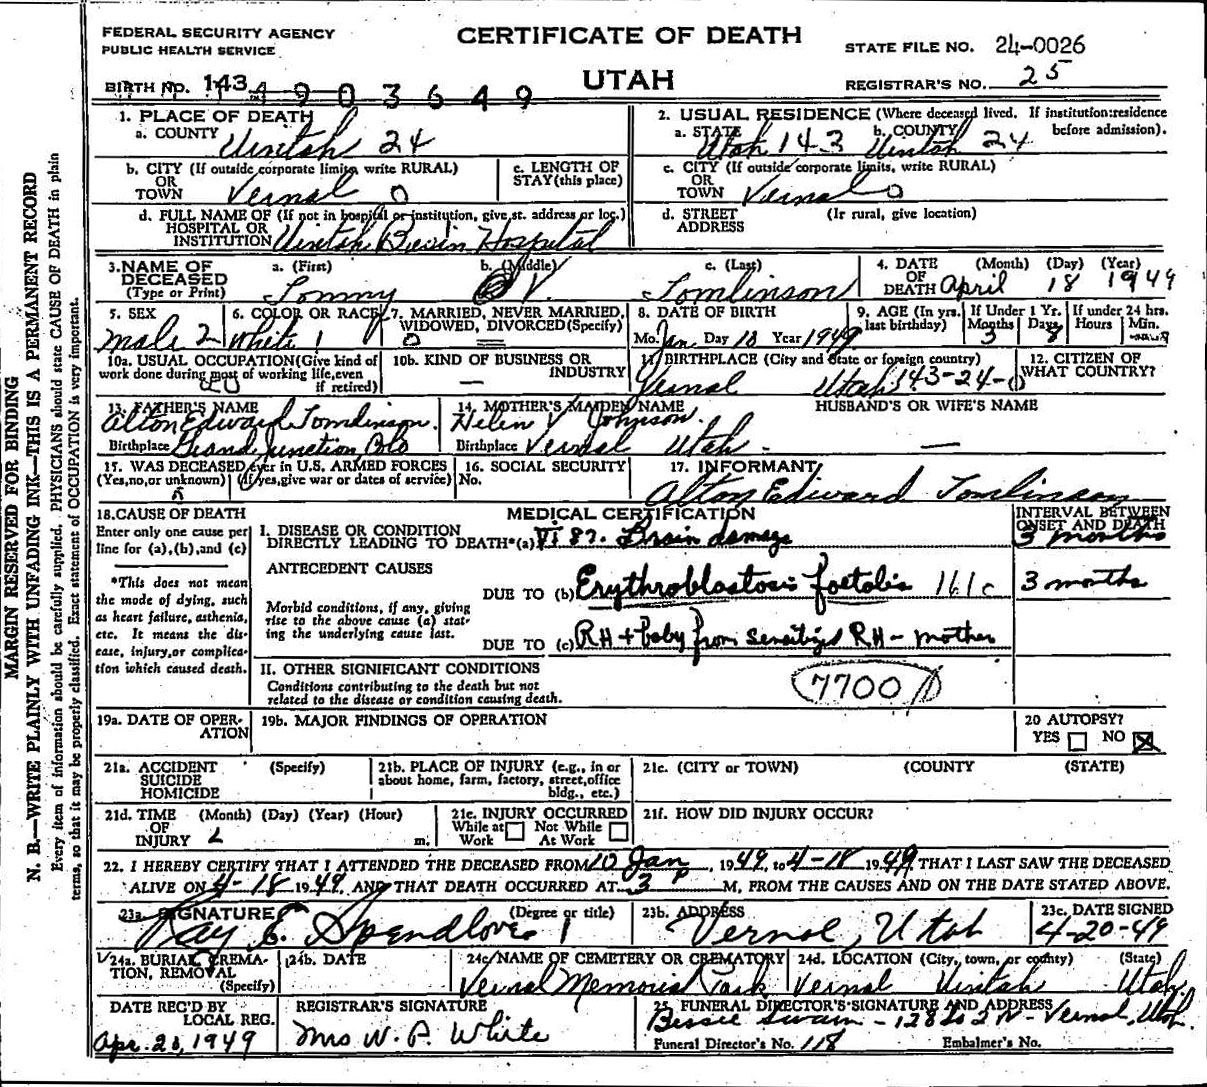 FEDERAL SECURITY AGENCY
PUBLIC HEALTH SERVICE
CERTIFICATE OF DEATH
UTAH
STATE FILE NO. 24-0026
REGISTRAR'S NO. 25
BIRTH NO. 143 4903649
1. PLACE OF DEATH
a. COUNTY Uintah 24
2. USUAL RESIDENCE (Where deceased lived. If institution: residence before admission).
a. STATE Utah 143 b. COUNTY Uintah 24
b. CITY (If outside corporate limits, write RURAL) OR TOWN Vernal 0
c. LENGTH OF STAY (this place)
c. CITY (If outside corporate limits, write RURAL) OR TOWN Vernal 0
d. FULL NAME OF (If not in hospital or institution, give st. address or loc.) HOSPITAL OR INSTITUTION Uintah Basin Hospital
d. STREET ADDRESS (Ir rural, give location)
3. NAME OF DECEASED (Type or Print)
a. (First) Tommy
b. (Middle) V.
c. (Last) Tomlinson
4. DATE OF DEATH (Month) (Day) (Year) April 18 1949
5. SEX male 2
6. COLOR OR RACE white 1
7. MARRIED, NEVER MARRIED, WIDOWED, DIVORCED (Specify) 0
8. DATE OF BIRTH Mo. Jan Day 10 Year 1949
9. AGE (In yrs. last birthday)
If Under 1 Yr. Months 3 Days 8
If under 24 hrs. Hours Min.
10a. USUAL OCCUPATION (Give kind of work done during most of working life, even if retired)
10b. KIND OF BUSINESS OR INDUSTRY —
11. BIRTHPLACE (City and State or foreign country) Vernal Utah 143-24-
12. CITIZEN OF WHAT COUNTRY?
13. FATHER'S NAME Alton Edward Tomlinson.
Birthplace Grand Junction, Colo
14. MOTHER'S MAIDEN NAME Helen V. Johnson.
Birthplace Vernal Utah.
HUSBAND'S OR WIFE'S NAME —
15. WAS DECEASED ever in U.S. ARMED FORCES (Yes, no, or unknown) (If yes, give war or dates of service)
16. SOCIAL SECURITY No.
17. INFORMANT Alton Edward Tomlinson
18. CAUSE OF DEATH
Enter only one cause per line for (a), (b), and (c)
*This does not mean the mode of dying, such as heart failure, asthenia, etc. It means the disease, injury, or complication which caused death.
MEDICAL CERTIFICATION
INTERVAL BETWEEN ONSET AND DEATH
I. DISEASE OR CONDITION DIRECTLY LEADING TO DEATH* (a) VI 87. Brain damage 3 months
ANTECEDENT CAUSES
DUE TO (b) Erythroblastosis foetalis 161c 3 months
Morbid conditions, if any, giving rise to the above cause (a) stating the underlying cause last.
DUE TO (c) RH + baby from sensitized RH - mother
II. OTHER SIGNIFICANT CONDITIONS
Conditions contributing to the death but not related to the disease or condition causing death.
7700
19a. DATE OF OPERATION
19b. MAJOR FINDINGS OF OPERATION
20 AUTOPSY? YES ☐ NO ☒
21a. ACCIDENT SUICIDE HOMICIDE (Specify)
21b. PLACE OF INJURY (e.g., in or about home, farm, factory, street, office bldg., etc.)
21c. (CITY OR TOWN) (COUNTY) (STATE)
21d. TIME OF INJURY (Month) (Day) (Year) (Hour) m.
21e. INJURY OCCURRED While at Work ☐ Not While At Work ☐
21f. HOW DID INJURY OCCUR?
22. I HEREBY CERTIFY THAT I ATTENDED THE DECEASED FROM 10 Jan, 1949, to 4-18 1949 THAT I LAST SAW THE DECEASED
ALIVE ON 4-18 1949, AND THAT DEATH OCCURRED AT 3 P M, FROM THE CAUSES AND ON THE DATE STATED ABOVE.
23a. SIGNATURE (Degree or title) Ray E. Spendlove
23b. ADDRESS Vernal, Utah
23c. DATE SIGNED 4-20-49
24a. BURIAL, CREMATION, REMOVAL (Specify)
24b. DATE
24c. NAME OF CEMETERY OR CREMATORY Vernal Memorial Park
24d. LOCATION (City, town, or county) (State) Vernal Uintah Utah
DATE REC'D BY LOCAL REG. Apr. 20, 1949
REGISTRAR'S SIGNATURE Mrs W. P. White
25. FUNERAL DIRECTOR'S SIGNATURE AND ADDRESS Bessie Swain - Vernal, Utah.
Funeral Director's No. 118
Embalmer's No.
MARGIN RESERVED FOR BINDING
N. B.—WRITE PLAINLY WITH UNFADING INK—THIS IS A PERMANENT RECORD
Every item of information should be carefully supplied. PHYSICIANS should state CAUSE OF DEATH in plain
terms, so that it may be properly classified. Exact statement of OCCUPATION is very important.